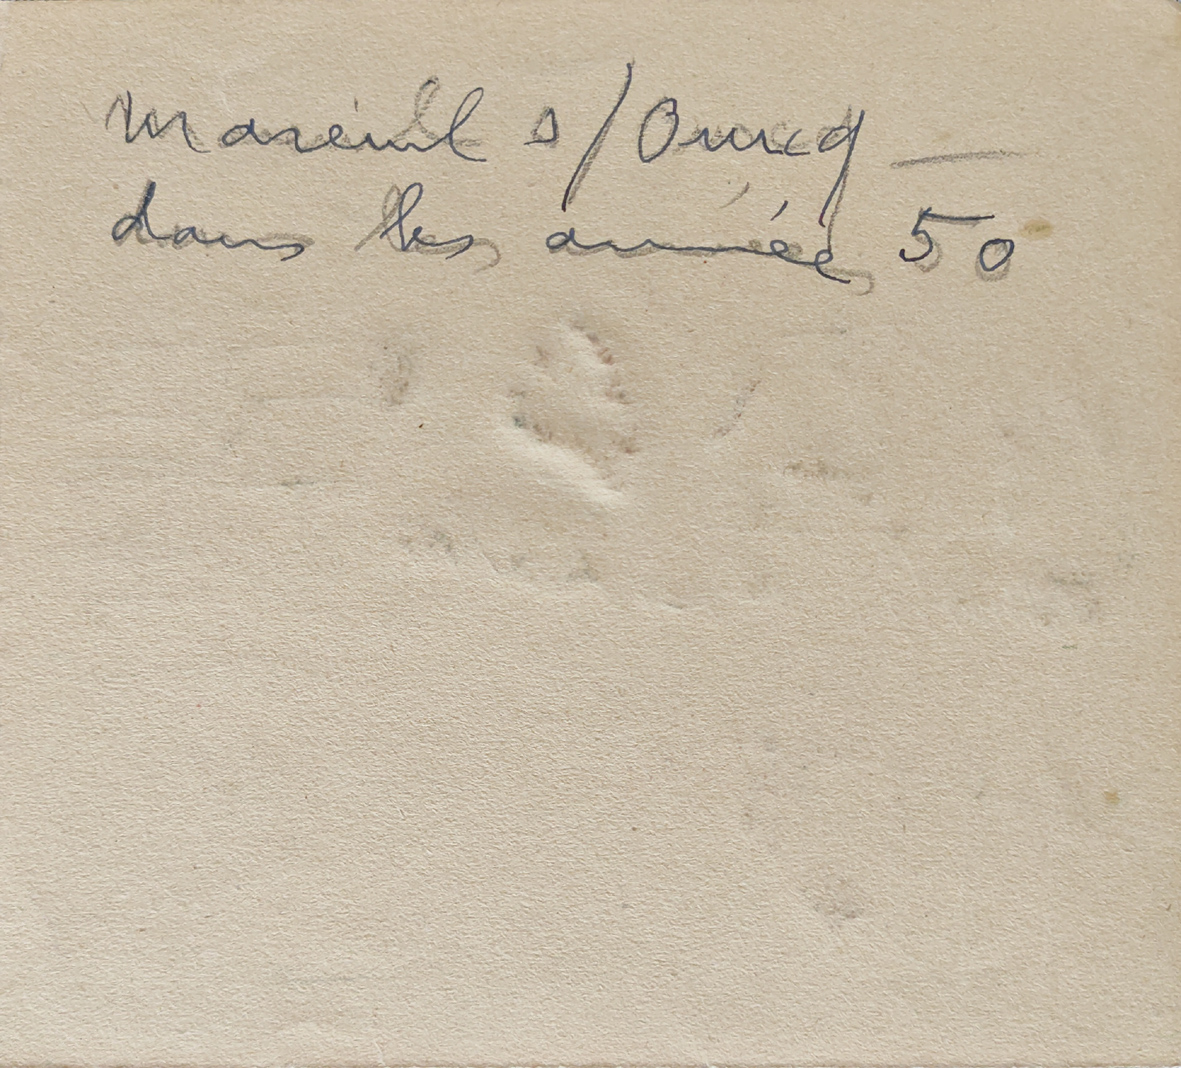 Mareuil s/Ourcq —
dans les année 50